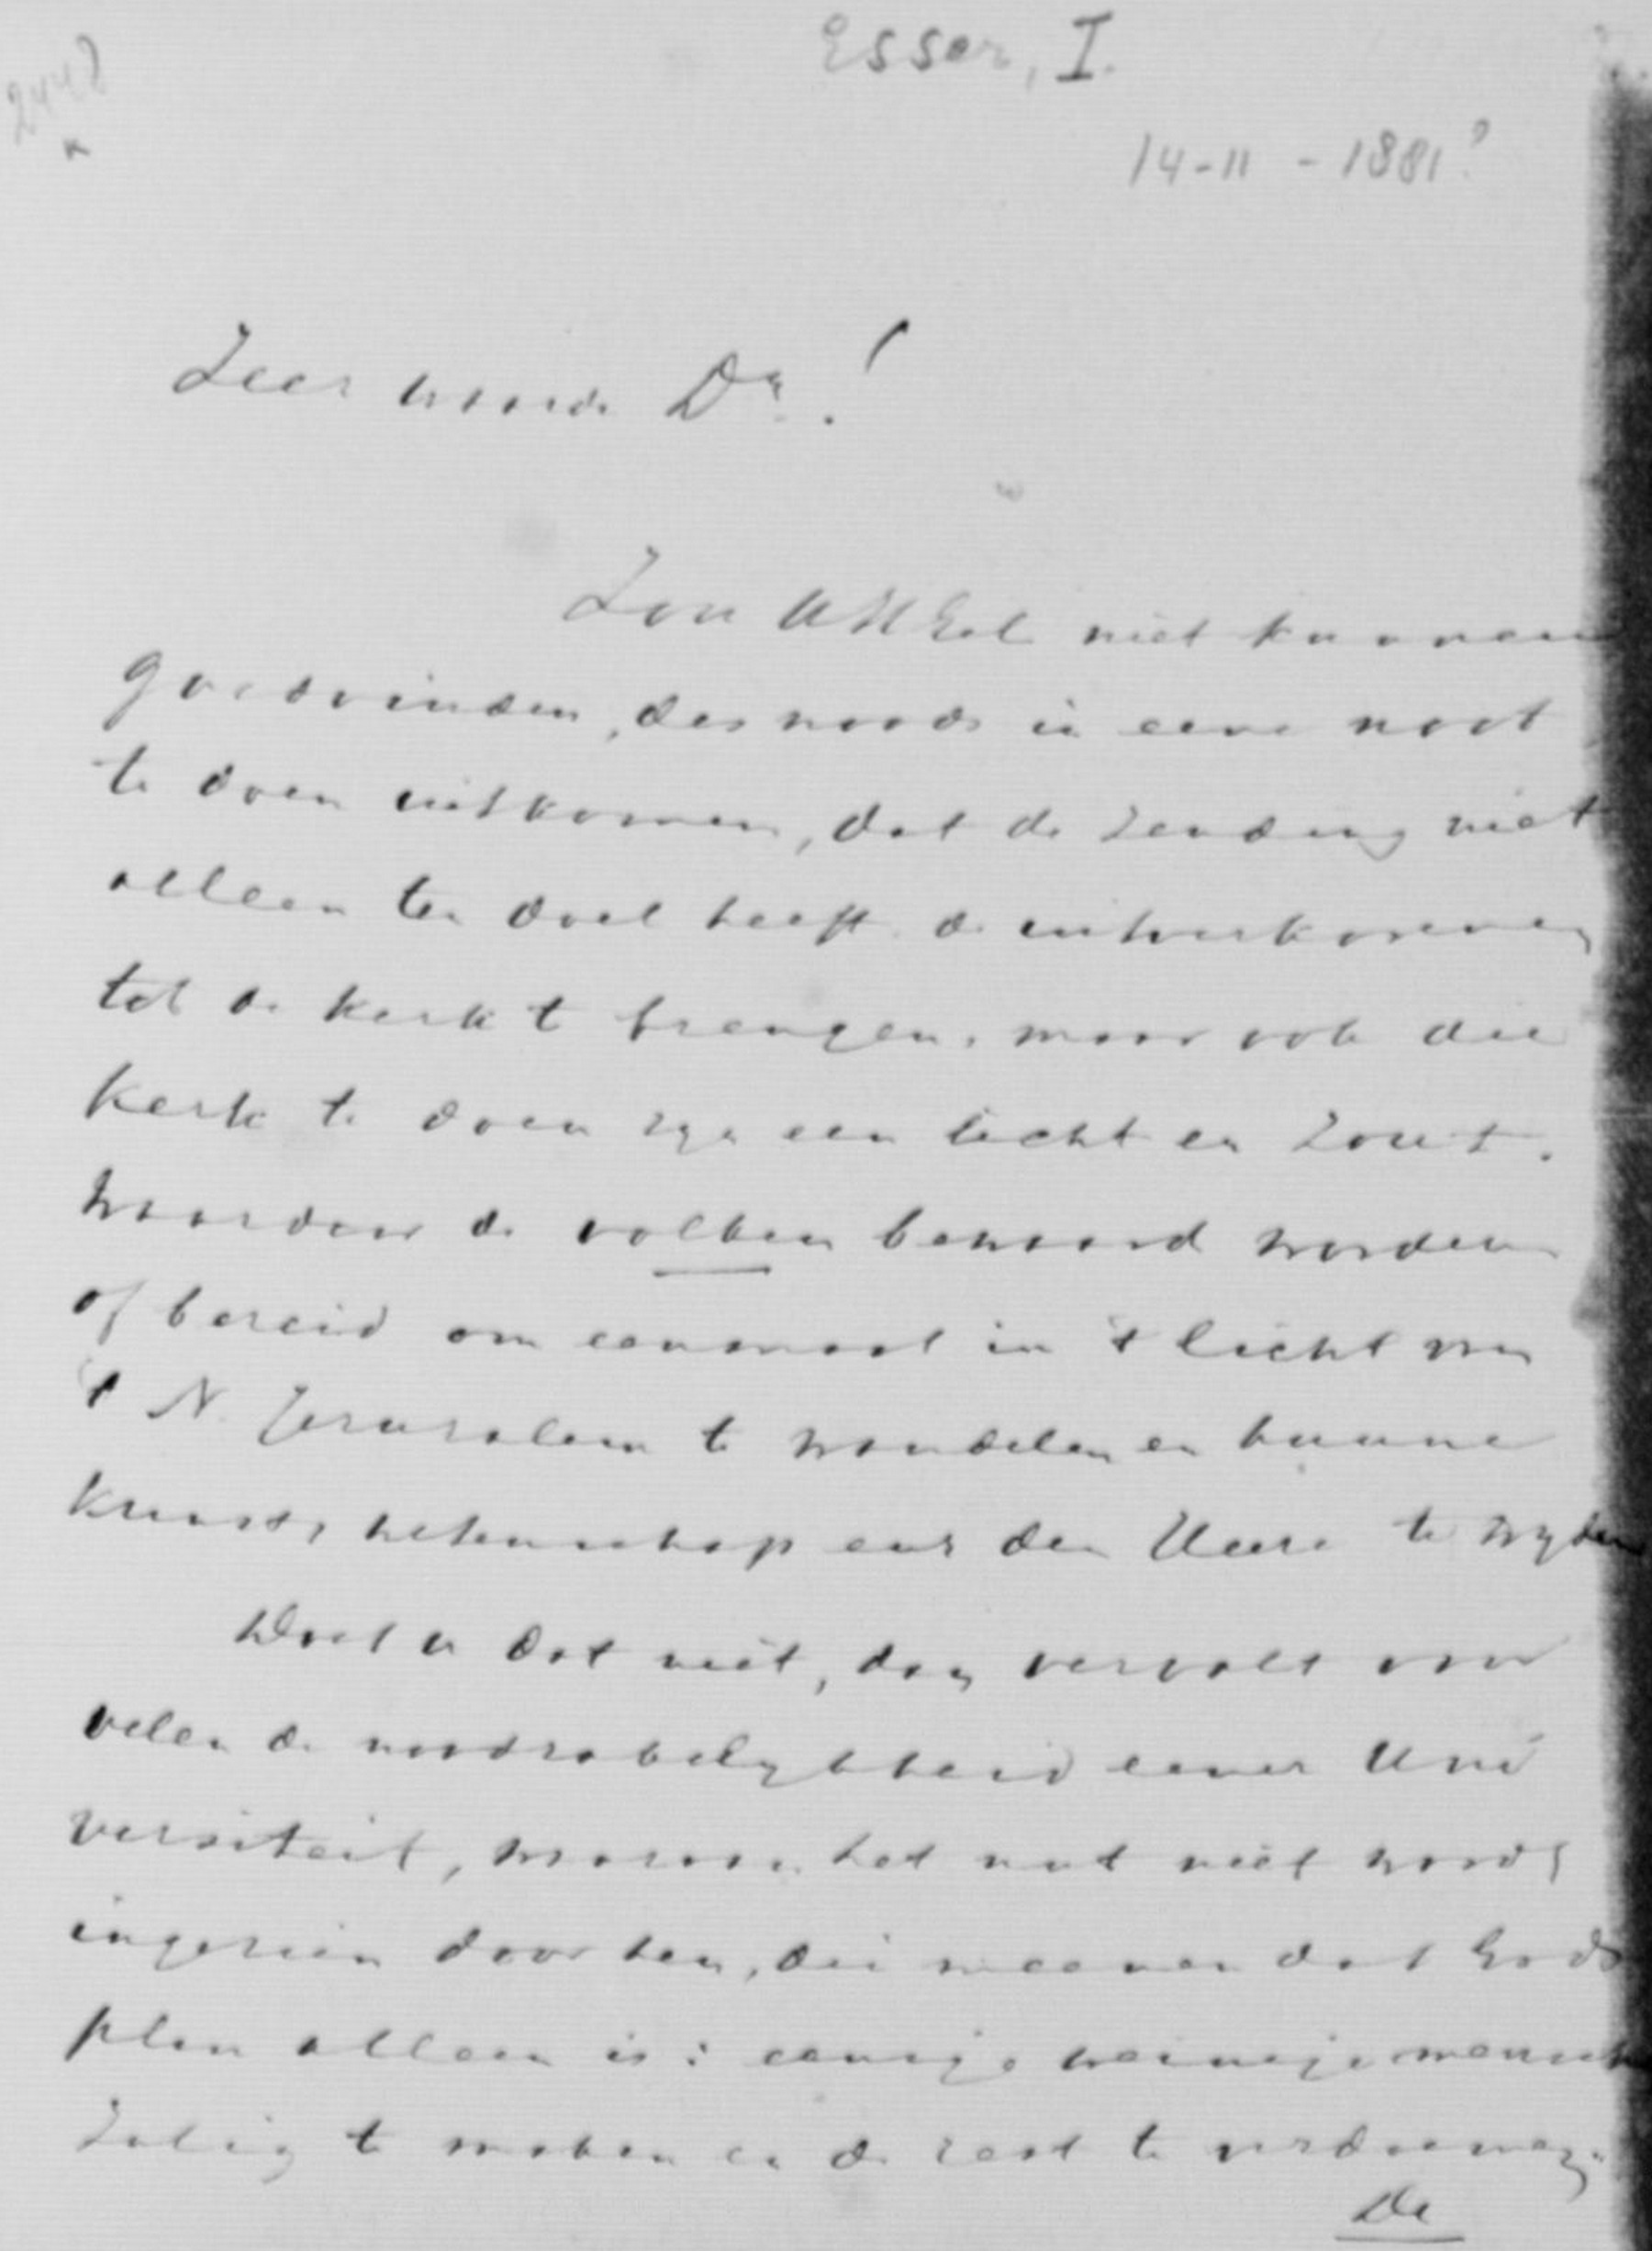 Esser, I.
2448
14-11-1881?
Zeer waarde Dr.!
Zou UWEd niet kunnen
goedvinden, des noods in eene noot
te doen uitkomen, dat de zending niet
alleen ten doel heeft de uitverkorenen
tot de kerk te brengen, maar ook die
kerk te doen zijn een licht en zout.
waardoor de volken bewaard worden
of bereid om eenmaal in 't licht van
't N. Jeruzalem te wandelen en hunne
kunst, wetenschap enz den Heere te wijden
Doet u dat niet, dan vervalt voor
velen de noodzakelijkheid eener Uni
versiteit, waarvan het nut niet wordt
ingezien door hen, die meenen dat Gods
plan alleen is: eenige weinige mensch
zalig te maken en de rest te verdoemen.
De